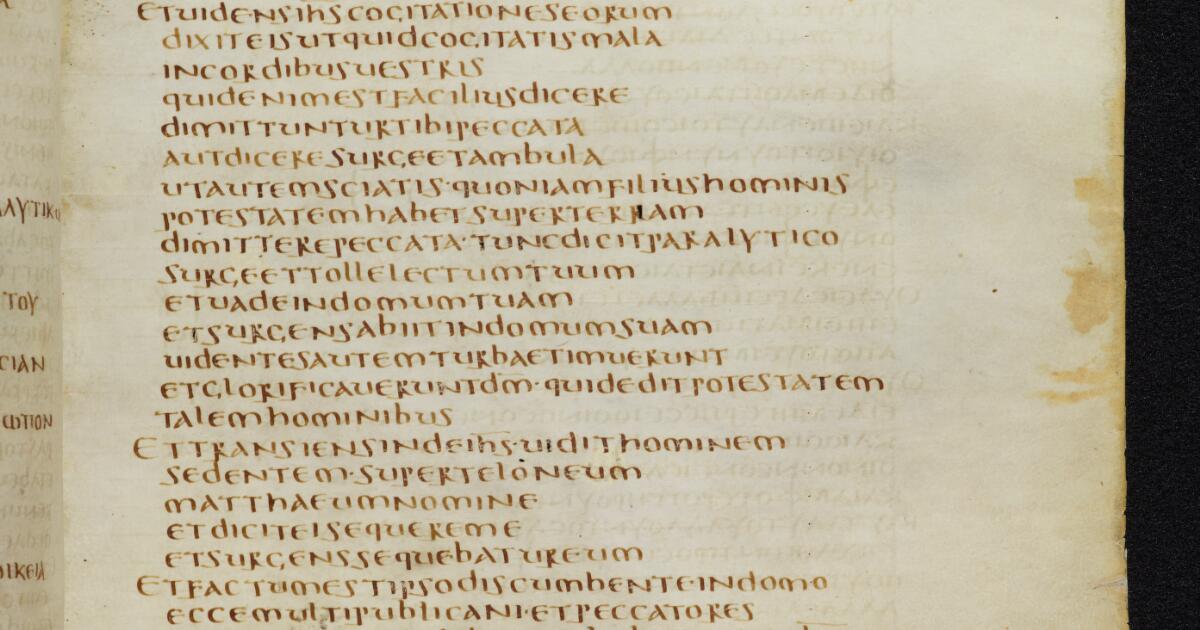 ΛΥΤΙΚΩ
ΤΟΥ
CΙΑΝ
ΩΤΙΟΝ
ΟΙΚΕΙΑ
ETUIDENSIHSCOGITATIONESEORUM
DIXITEISUTQUIDCOGITATISMALA
INCORDIBUSUESTRIS
QUIDENIMESTFACILIUSDICERE
DIMITTUNTURTIBIPECCATA
AUTDICERESURGEETAMBULA
UTAUTEMSCIATIS·QUONIAMFILIUSHOMINIS
POTESTATEMHABETSUPERTERRAM
DIMITTEREPECCATA·TUNCDICITPARALYTICO
SURGEETTOLLELECTUMTUUM
ETUADEINDOMUMTUAM
ETSURGENSABIITINDOMUMSUAM
UIDENTESAUTEMTURBAETIMUERUNT
ETGLORIFICAUERUNTDM̄·QUIDEDITPOTESTATEM
TALEMHOMINIBUS
ETTRANSIENSINDEIHS·UIDITHOMINEM
SEDENTEM·SUPERTELONEUM
MATTHAEUMNOMINE
ETDICITEISEQUEREME
ETSURGENSSEQUEBATUREUM
ETFACTUMESTIPSODISCUMBENTE·INDOMO
ECCEMULTIPUBLICANI·ETPECCATORES